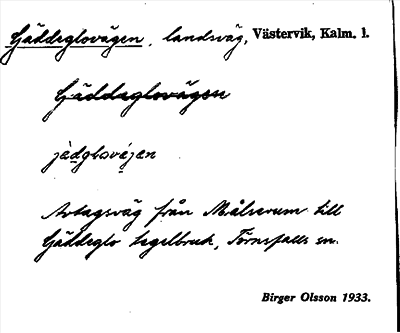 Gäddeglovägen, landsväg, Västervik, Kalm. l.
Gäddeglovägen
jädglovä́jen
Avtagsväg från Målserum till
Gäddeglo tegelbruk, Törnsfalls sn.
Birger Olsson 1933.